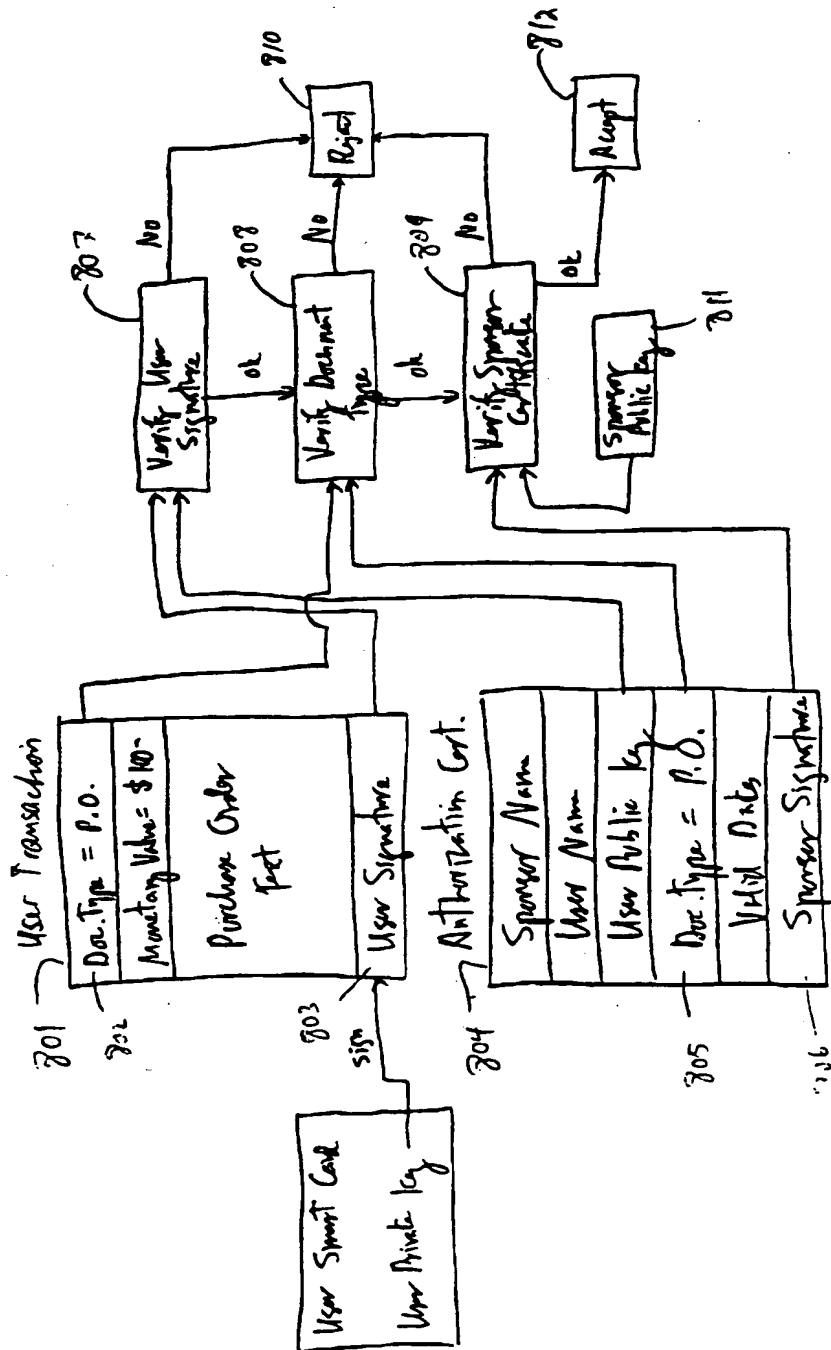 User Smart Card
User Private Key
sign
801
User Transaction
802
Doc.Type = P.O.
Monetary Value = $100-
Purchase Order
Text
803
User Signature
804
Authorization Cert.
Sponsor Name
User Name
User Public Key
805
Doc.Type = P.O.
Valid Dates
Sponsor Signature
807
Verify User
Signature
No
OK
808
Verify Document
Type
No
OK
809
Verify Sponsor
Certificate
No
OK
810
Reject
811
Sponsor
Public Key
812
Accept